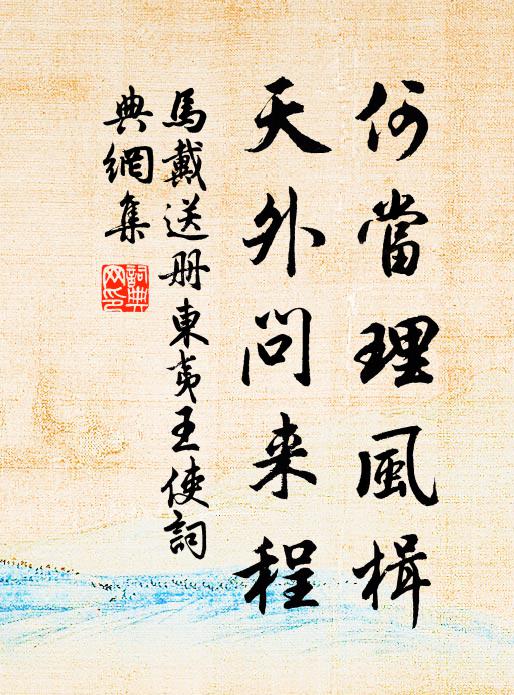 何當理風楫
天外問来程
馬戴送册東夷王使詞
典網集
詞典
网印